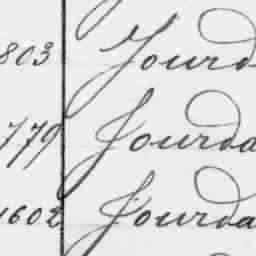 803 Jourd
779 Jourda
1602 Jourda